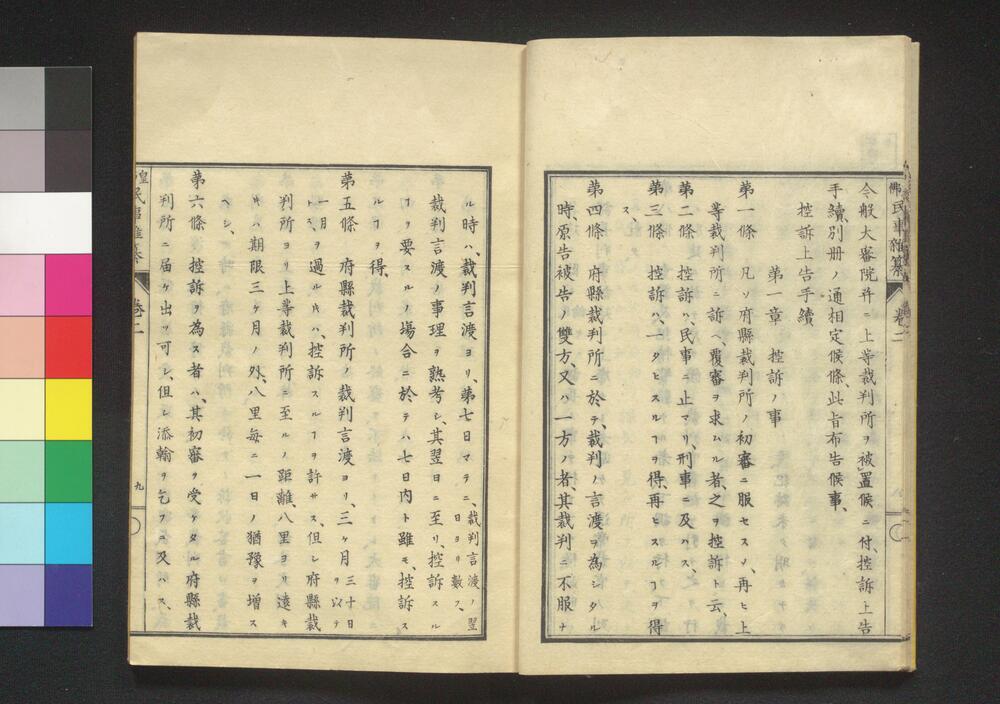 今般大審院幷ニ上等裁判所ヲ被置候ニ付、控訴上告
手續、別册ノ通相定候條、此旨布告候事、
控訴上告手續
第一章 控訴ノ事
第一條 凡ソ府縣裁判所ノ初審ニ服セスノ、再ヒ上
等裁判所ニ訴ヘ、覆審ヲ求ムル者、之ヲ控訴ト云、
第二條 控訴ハ、民事ニ止マリ、刑事ニ及ハス、
第三條 控訴ハ、一タヒスルヿヲ得、再ヒスルヿヲ得
ス、
第四條 府縣裁判所ニ於テ、裁判ノ言渡ヲ為シタル
時、原告被告ノ雙方又ハ一方ノ者、其裁判ニ不服ナ
佛民事雜纂 卷二
ル時ハ、裁判言渡ヨリ、第七日マテニ、裁判言渡ノ翌
日ヨリ數フ、
裁判言渡ノ事理ヲ熟考シ、其翌日ニ至リ、控訴スル
ヿヲ要スルノ場合ニ於テハ七日內ト雖モ、控訴ス
ルヿヲ得、
第五條 府縣裁判所ノ裁判言渡ヨリ、三ヶ月 三十日
ヲ以テ
一月
トスヲ過ルキハ、控訴スルヿヲ許サス、但シ府縣裁
判所ヨリ上等裁判所ニ至ルノ距離、八里ヨリ遠キ
キハ期限三ヶ月ノ外、八里每ニ一日ノ猶豫ヲ增ス
ヘシ、
第六條 控訴ヲ為ス者ハ、其初審ヲ受ケタル府縣裁
判所ニ届ケ出ツ可シ、但シ添翰ヲ乞フニ及ハス、
卷二
九